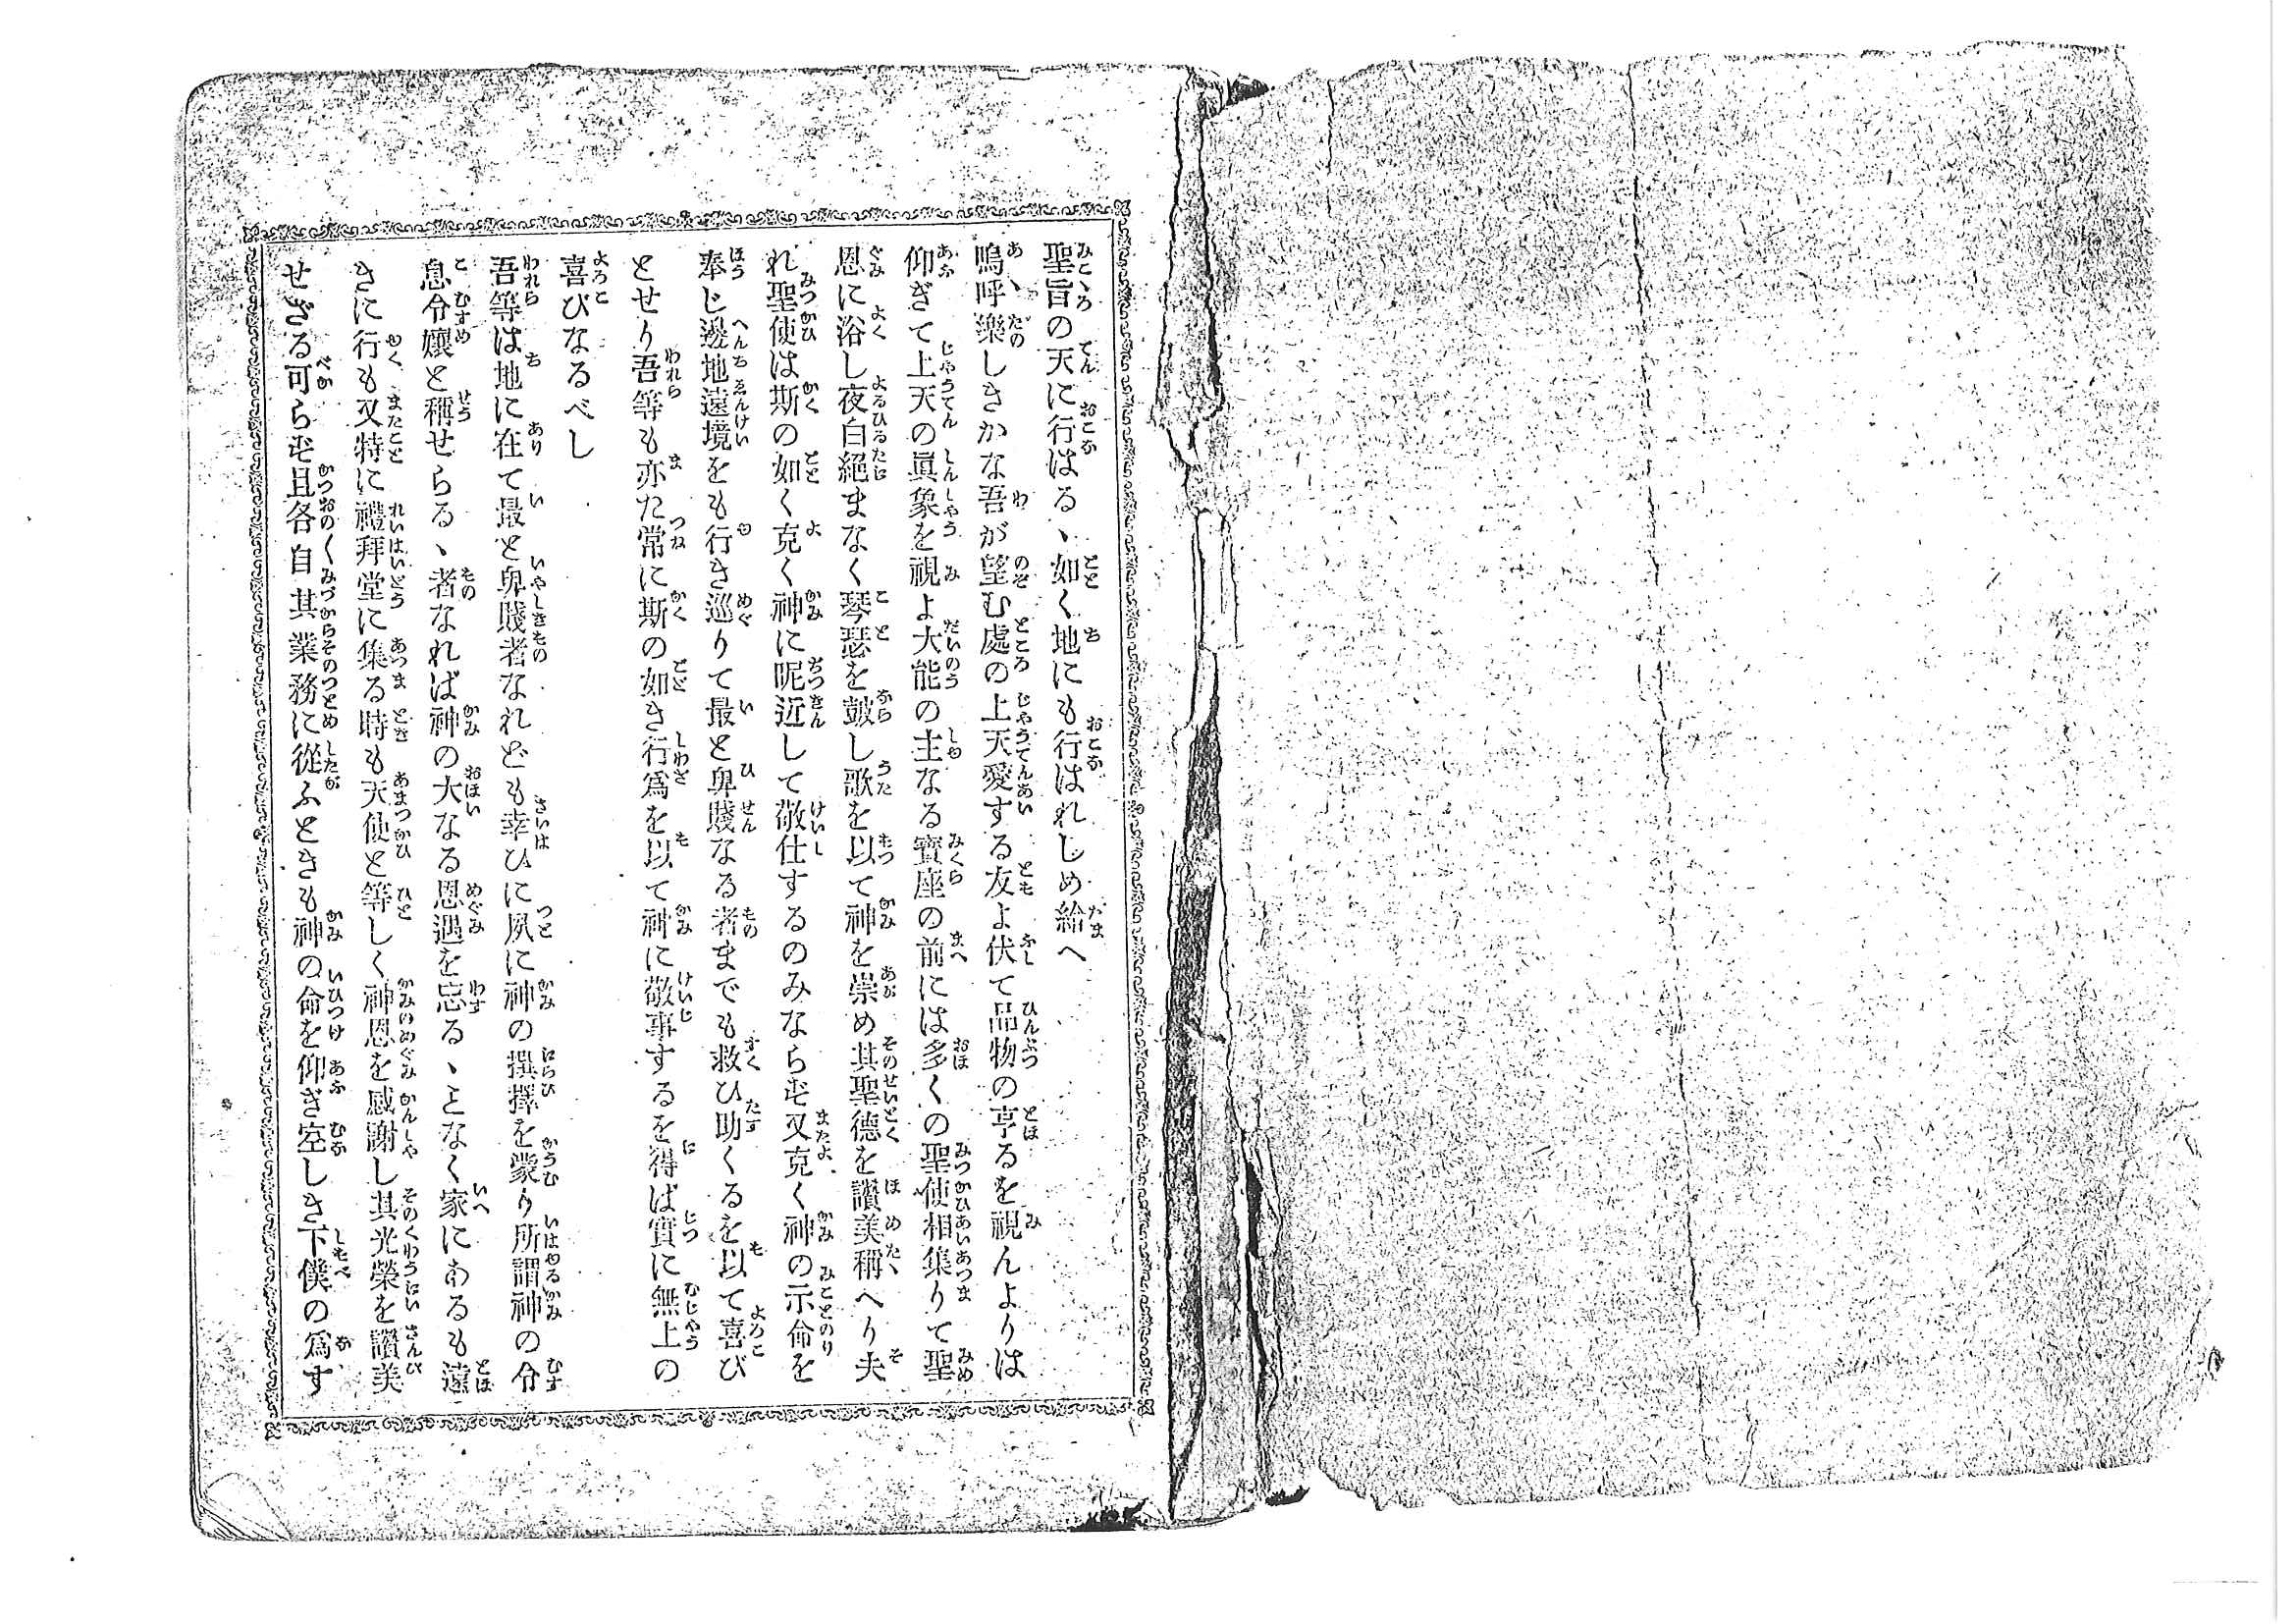 聖旨の天に行はるゝ如く地にも行はれしめ給へ
嗚呼樂しきかな吾が望む處の上天愛する友よ伏て品物の亨るを視んよりは
仰ぎて上天の眞象を視よ大能の主なる寳座の前には多くの聖使相集りて聖
恩に浴し夜白絕まなく琴瑟を皷し歌を以て神を崇め其聖德を讃美稱へり夫
れ聖使は斯の如く克く神に昵近して敬仕するのみならず又克く神の示命を
奉じ邊地遠境をも行き巡りて最と卑賤なる者までも救ひ助くるを以て喜び
とせり吾等も亦た常に斯の如き行爲を以て神に敬事するを得ば實に無上の
喜びなるべし
吾等は地に在て最と卑賤者なれども幸ひに夙に神の撰擇を蒙り所謂神の令
息令孃と稱せらるゝ者なれば神の大なる恩遇を忘るゝとなく家にあるも遠
きに行も又特に禮拜堂に集る時も天使と等しく神恩を感謝し其光榮を讃美
せざる可らず且各自其業務に從ふときも神の命を仰ぎ空しき下僕の爲す